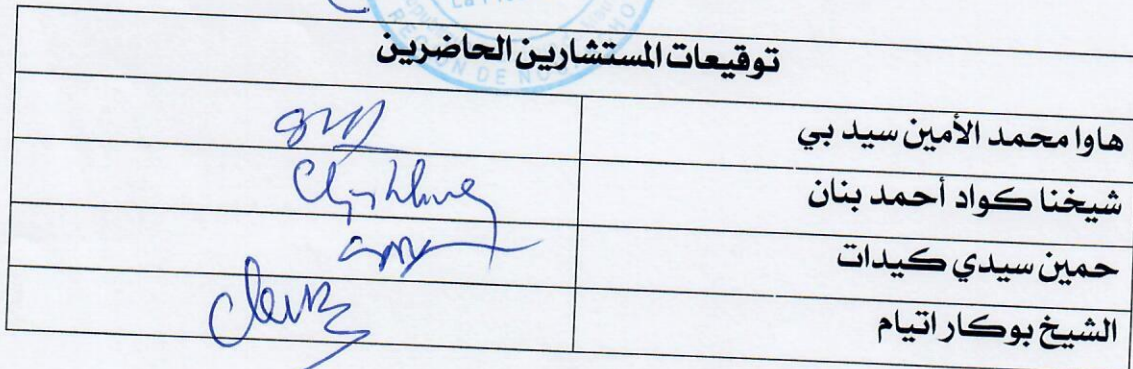 توقيعات المستشارين الحاضرين
هاوا محمد الأمين سيد بي
شيخنا كواد أحمد بنان
حمين سيدي كيدات
الشيخ بوكار اتيام
REGION DE NOU